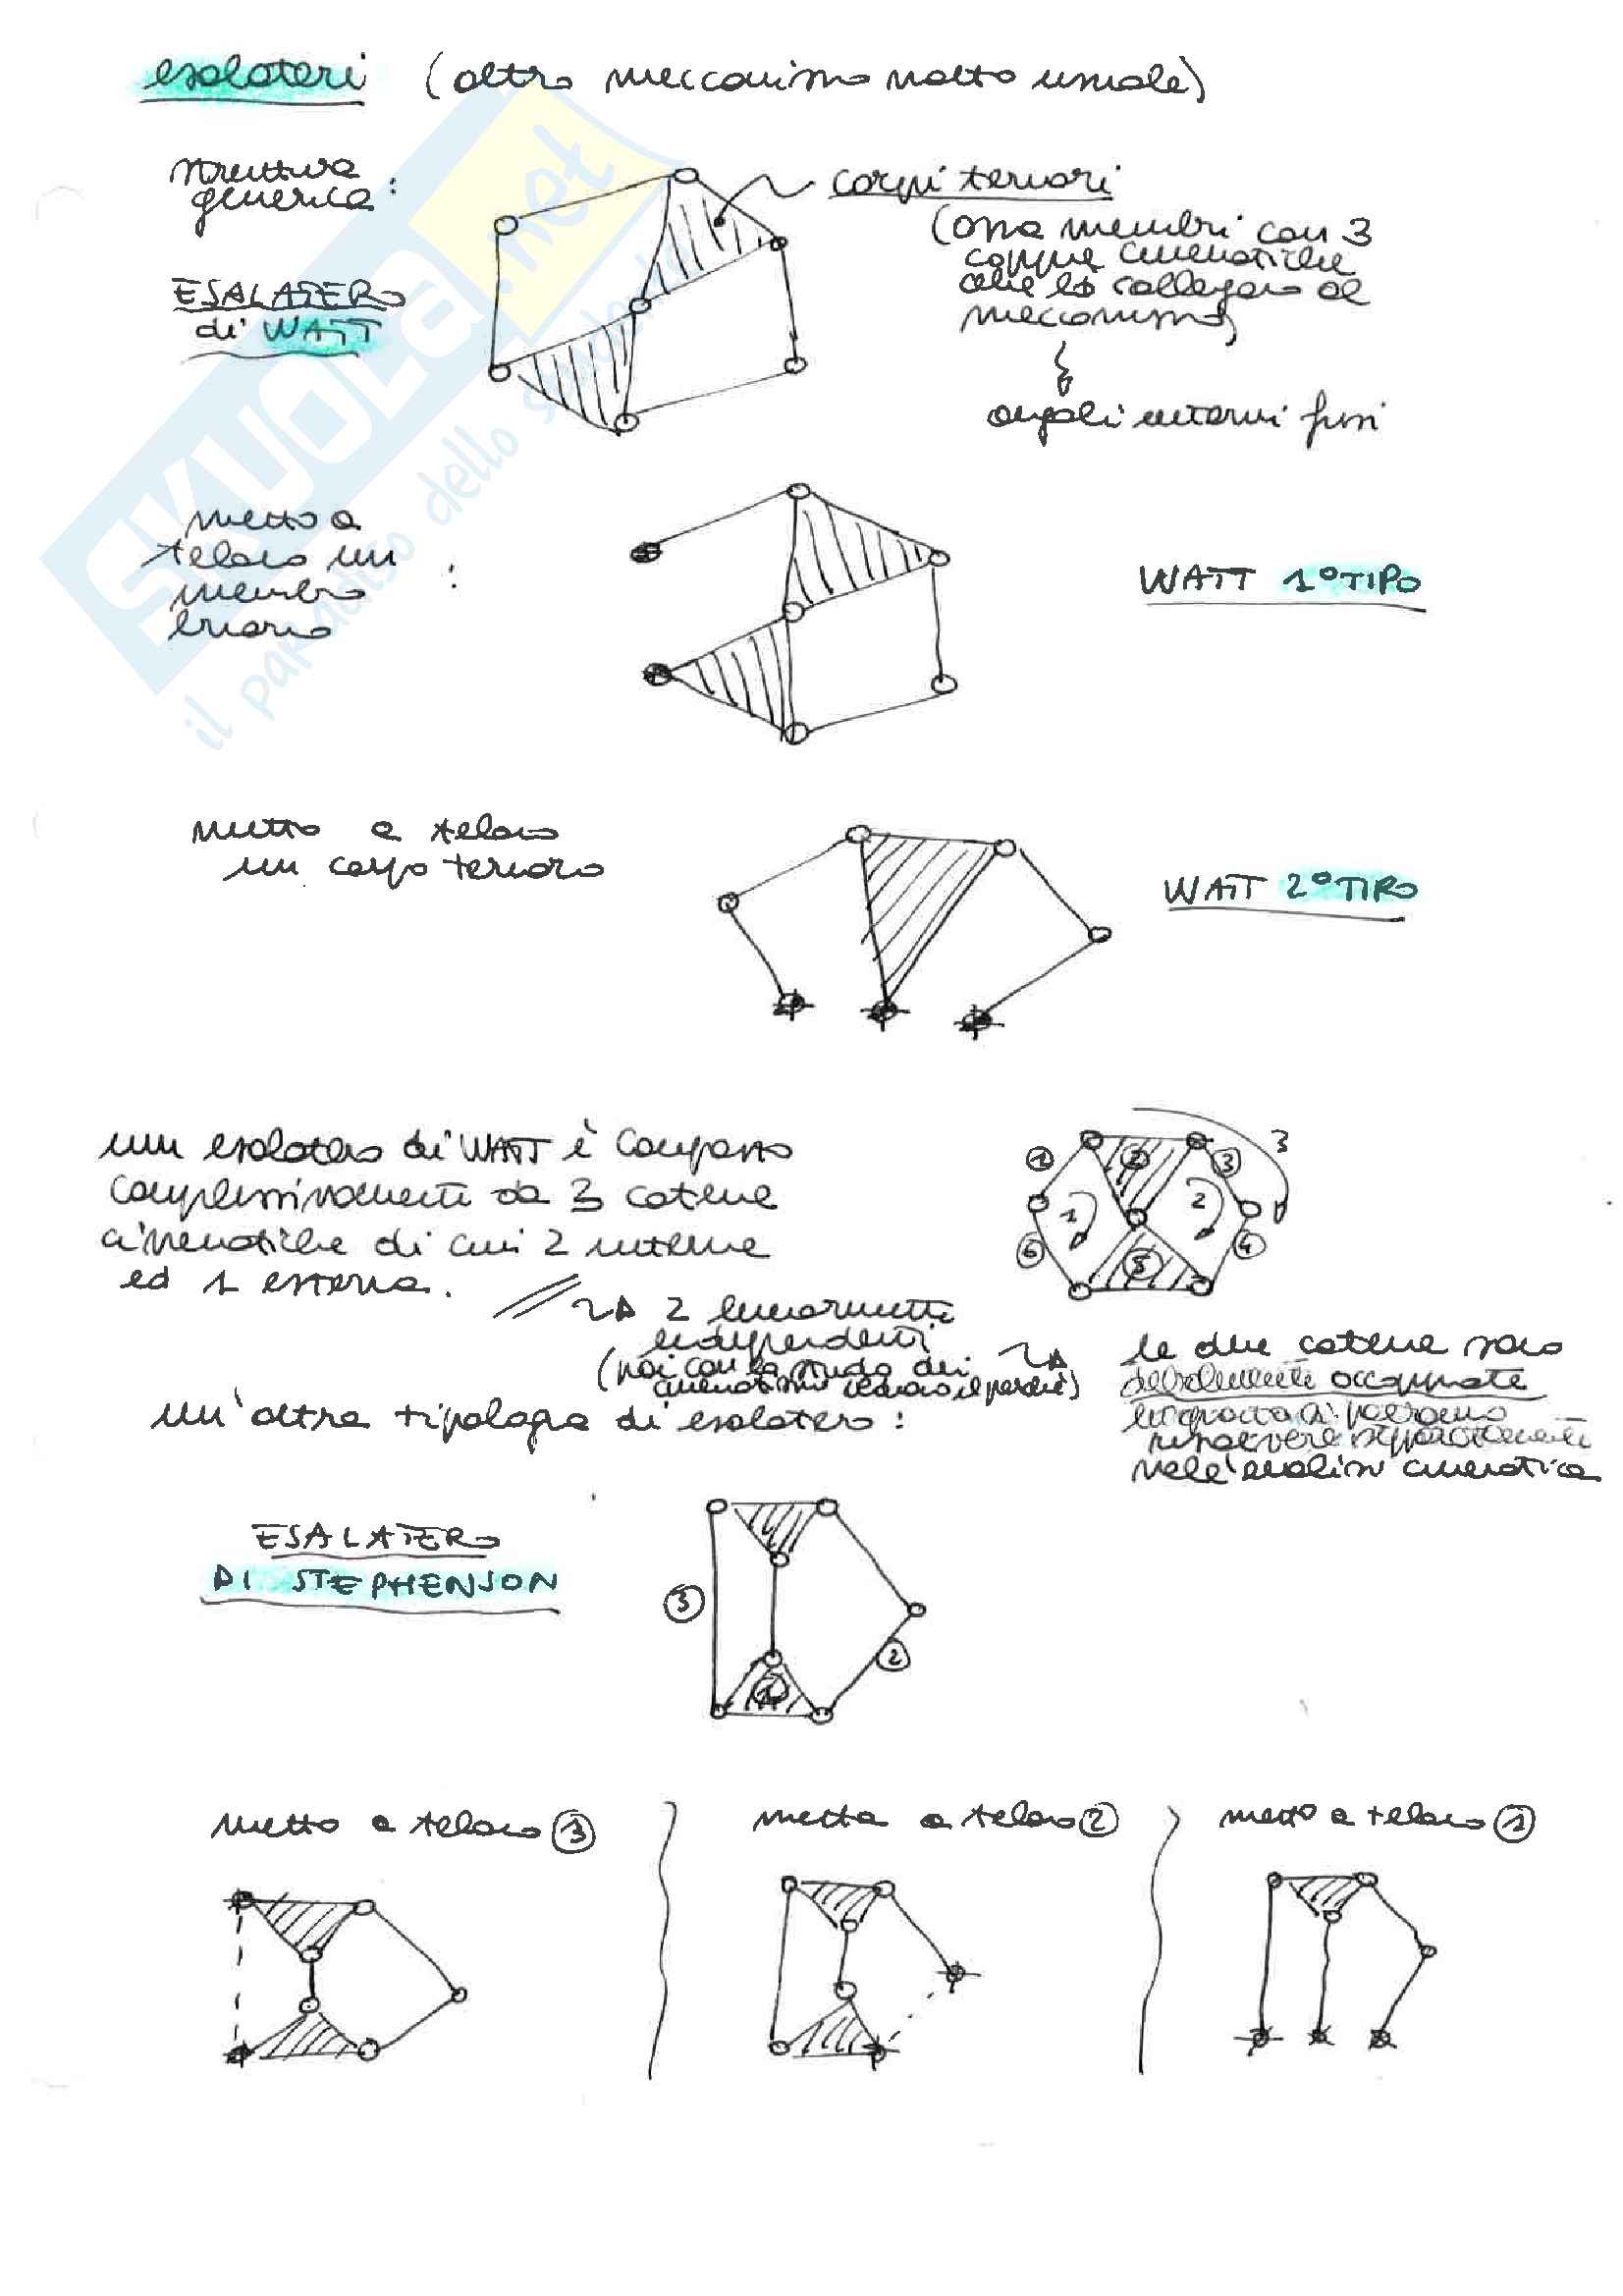 esalateri (altro meccanismo molto usuale)
struttura
generica :
corpi ternari
(ossia membri con 3
coppie cinematiche
che lo collegano al
meccanismo)
ESALATERO
di WATT
angoli interni fissi
metto a
telaio un
membro
binario
:
WATT 1° TIPO
metto a telaio
un corpo ternario
WATT 2° TIPO
un esalatero di WATT è composto
complessivamente da 3 catene
cinematiche di cui 2 interne
ed 1 esterna.
1
2
3
3
1
2
6
5
4
2 linearmente
indipendenti
(poi con lo studio dei
cinematismi vedremo il perché)
le due catene sono
debolmente accoppiate
risolvere separatamente
nell'analisi cinematica
un'altra tipologia di esalatero :
ESALATERO
DI STEPHENSON
3
2
1
metto a telaio 3
metto a telaio 2
metto a telaio 1
SKUOLA.net
il paradiso dello